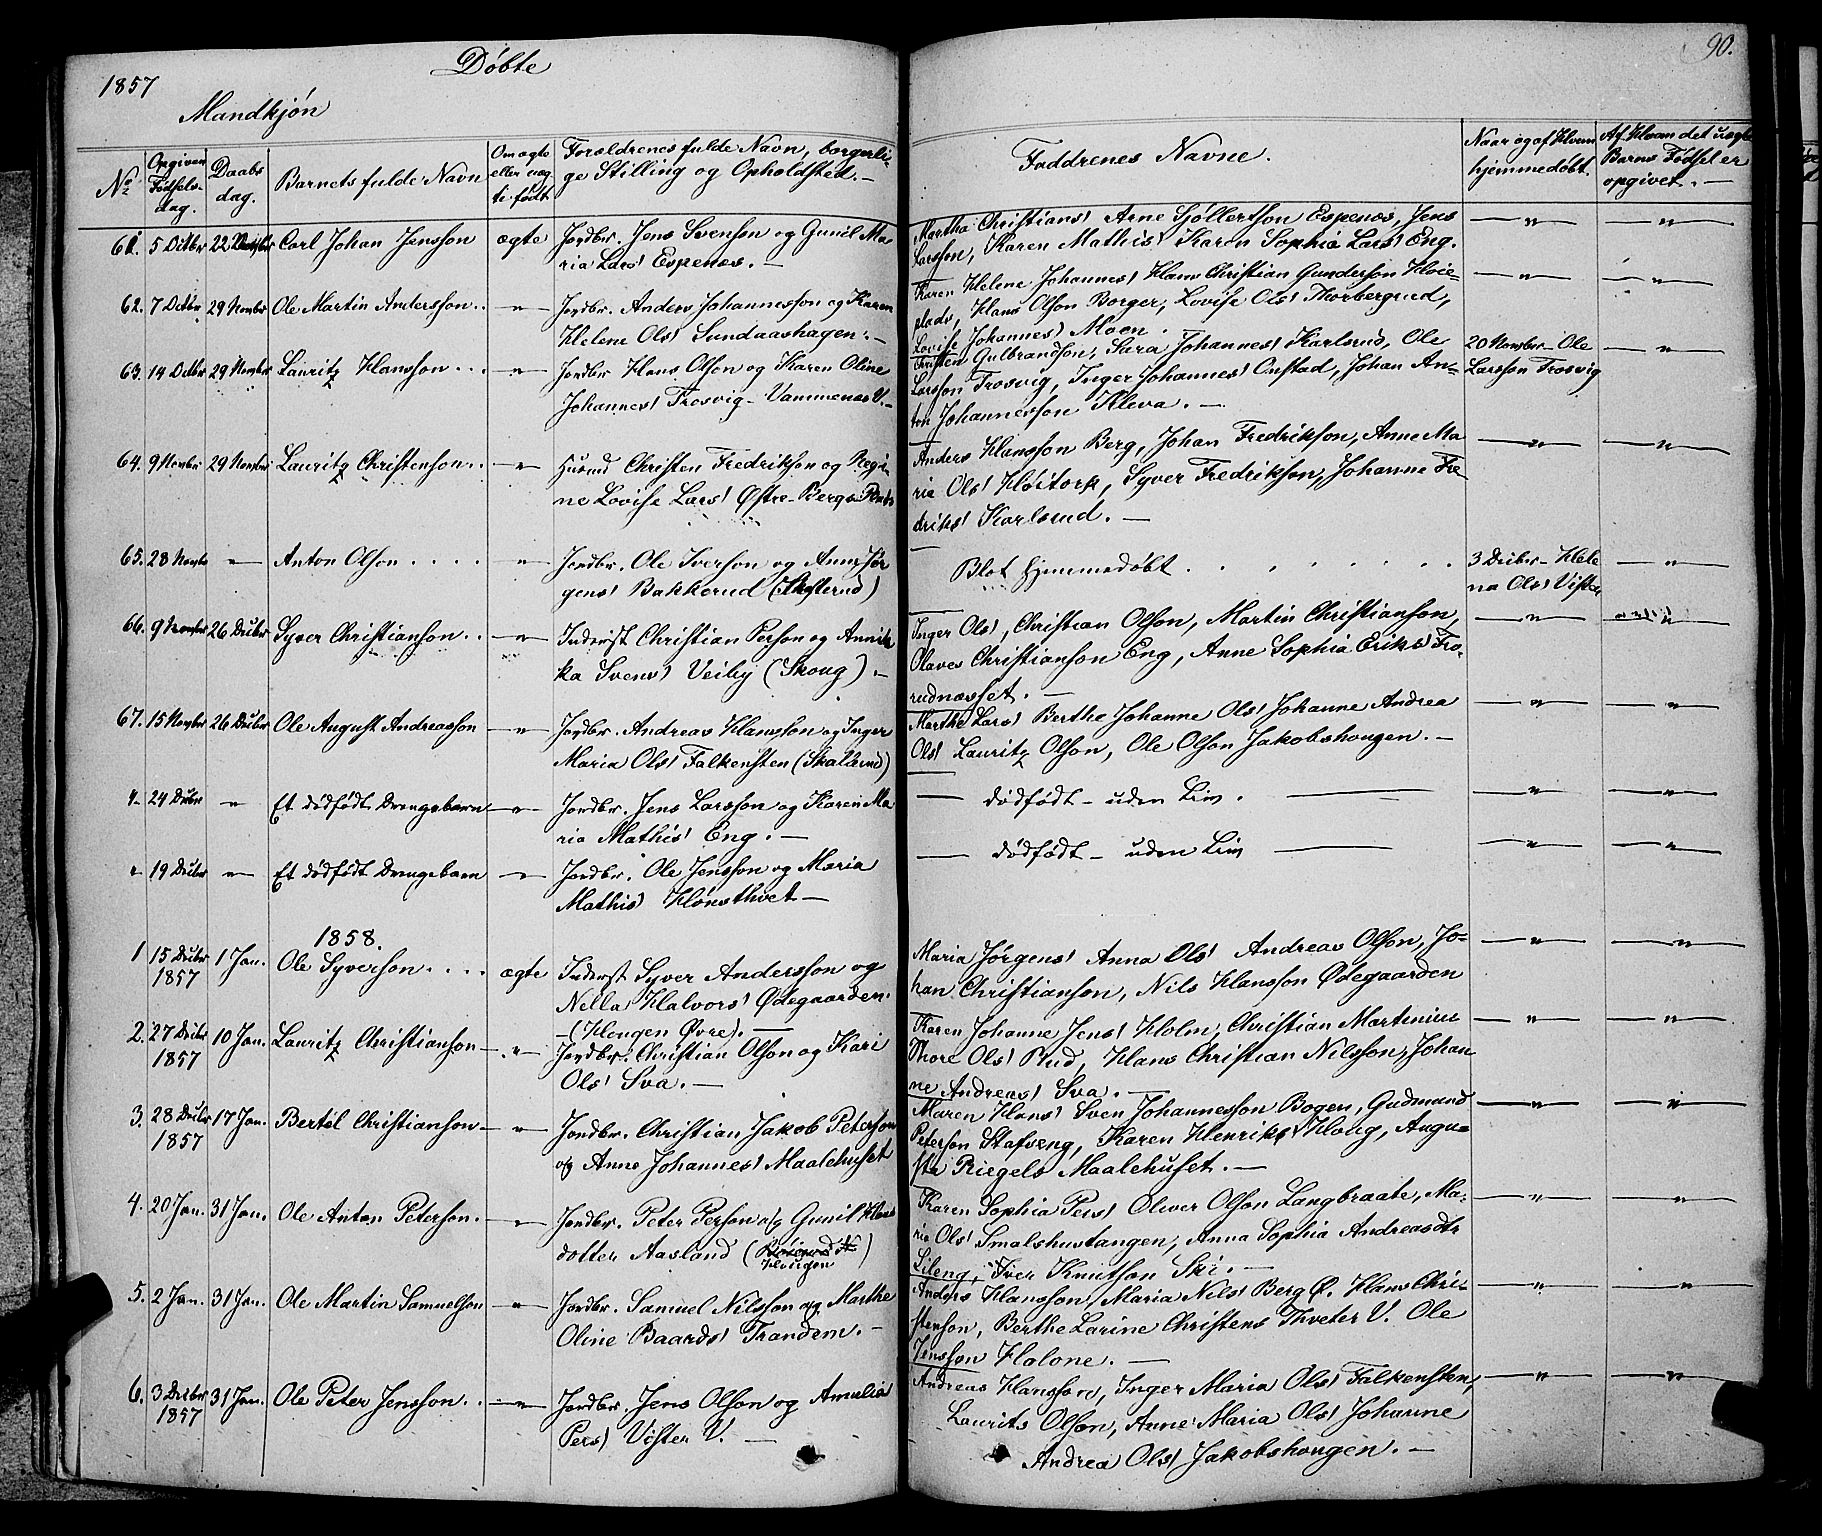 1857
Døbte
90.
Mandkjøn
No
Opgiven Fødsels-dag.
Daabs dag.
Barnets fulde Navn
Om ægte eller uæg te født
Forældrenes fulde Navn, borgerli-
ge Stilling og Opholdsted. —
Faddrenes Navne.
Naar og af Hvem hjemmedøbt.
Af Hvem det uægte Barns Fødsel er opgivet. —
61. 5 Octbr 22 Novbr Carl Johan Jensson ægte Jordbr. Jens Svenson og Gunil Ma-
ria Lars! Espenes. —
Martha Christians! Arne Sjöllertson Espenes, Jens
Larsson, Karen Mathis! Karen Sophia Lars! Eng.
62. 7 Octbr 29 Novbr Ole Martin Andersson . . — " — Jordbr. Anders Johannesson og Karen
Helene Ols! Sundaashagen. —
Karen Helene Johannes! Hans Christian Gunderson Høie-
plads, Hans Olson Borger, Lovise Ols! Thorbergrud,
Lovise Johannes! Moen.
63. 14 Octbr 29 Novbr Lauritz Hansson . . . — " — Jordbr Hans Olson og Karen Oline
Johannes! Trosvig - Vammenes V. —
Christen Gulbrandson, Sara Johannes! Karlsrud, Ole
Larsson Trosvig, Inger Johannes! Onstad, Johan An-
ton Johannesson Kleva. —
20 Novbr. Ole
Larsson Trosvig
64. 9 Novbr 29 Novbr Lauritz Christenson . . — " — Husmd Christen Fredrikson og Regi-
ne Lovise Lars! Østre-Bergs
Anders Hansson Berg, Johan Fredrikson, Anne Ma
rie Ols! Høitorp, Syver Fredrikson, Johanne Fre
driks! Karlsrud. —
65. 28 Novbr — " — Anton Olson . . . . — " — Jordbr. Ole Iverson og Anne Jør
gens! Bakkerud
Blot hjemmedøbt . . . . . . . .
3 Decbr - Hele
na Ols! Vister
66. 9 Novbr 26 Decbr Syver Christianson . . — " — Inderst Christian Person og Annik
ka Svens! Veiby (Skoug) —
Inger Ols!, Christian Olson, Martin Christianson,
Olaves Christianson Eng, Anne Sophia Eriks! Fro-
rudnæsset. —
67. 15 Novbr 26 Decbr Ole August Andreasson — " — Jordbr. Andreas Hansson og Inger
Maria Ols! Falkensten (Skallerud)
Marthe Lars! Berthe Johanne Ols! Johanne Andrea
Ols! Lauritz Olson, Ole Olson Jakobshougen. —
24 Decbr — " — Et dödfödt Drengebarn — " — Jordbr. Jens Larsson og Karen Ma
ria Mathis! Eng. —
dödfödt - uden Liv.
19 Decbr — " — Et dödfödt Drengebarn — " — Jordbr. Ole Jensson og Maria
Mathis! Hønsthvet —
dödfödt - uden Liv
1858.
1 15 Decbr 1 Jan. Ole Syverson . . . . ægte Inderst Syver Andersson og
1857 Nella Halvors! Ødegaarden.
— (Hougen Øvre). —
Maria Jørgens! Anna Ols! Andreas Olson, Jo-
han Christianson, Nils Hansson Ødegaarden
2. 27 Decbr 10 Jan. Lauritz Christianson — " — Jordbr. Christian Olson og Kari
1857 Ols! Sva. —
Karen Johanne Jens! Holm, Christian Martinius
Thore Ols! Rud, Hans Christian Nilsson, Johan
ne Andreas! Sva. —
3. 28 Decbr 17 Jan. Bertel Christianson — " — Jordbr. Christian Jakob Peterson
1857 og Anne Johannes! Maalehuset
Maren Hans! Sven Johannesson Bogen, Gudmund
Peterson Stafseng, Karen Henriks! Houg, Augu-
sta Riegels Maalehuset. —
4. 20 Jan. 31 Jan. Ole Anton Peterson. — " — Jordbr. Peter Person og Gunil Hans
dotter Aasland
Hougen
Karen Sophia Pers! Oliver Olson Langbraate, Ma-
ria Ols! Smalshustangen, Anna Sophia Andreasdtr
Lileng, Iver Knutson Ski. —
5. 2 Jan. 31 Jan. Ole Martin Samuelson — " — Jordbr. Samuel Nilsson og Marthe
Oline Baards! Trandem. —
Anders Hansson, Maria Nils! Berg Ø. Hans Chri-
stenson, Berthe Larine Christens Thveter V. Ole
Jensson Holone. —
6. 3 Decbr 31 Jan. Ole Peter Jensson . . — " — Jordbr. Jens Olson og Amalia
1857 Pers! Vister V. —
Andreas Hansson, Inger Maria Ols! Falkensten,
Laurits Olson, Anne Maria Ols! Johanne
Andrea Ols! Jakobshougen. —